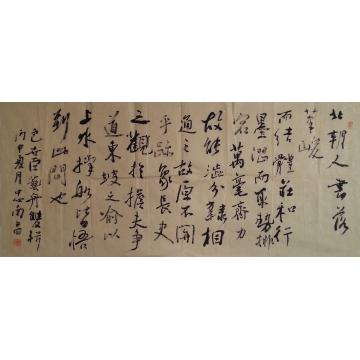 北朝人書落
筆峻
而結體莊和行
墨澀而取勢排
宕萬毫齊力
故能澀分隸相
通之故原不關
乎跡象長史
之觀於擔夫爭
道東坡之喻以
上水撐船皆悟
到此間也
包世臣藝舟雙楫
丙申夏月